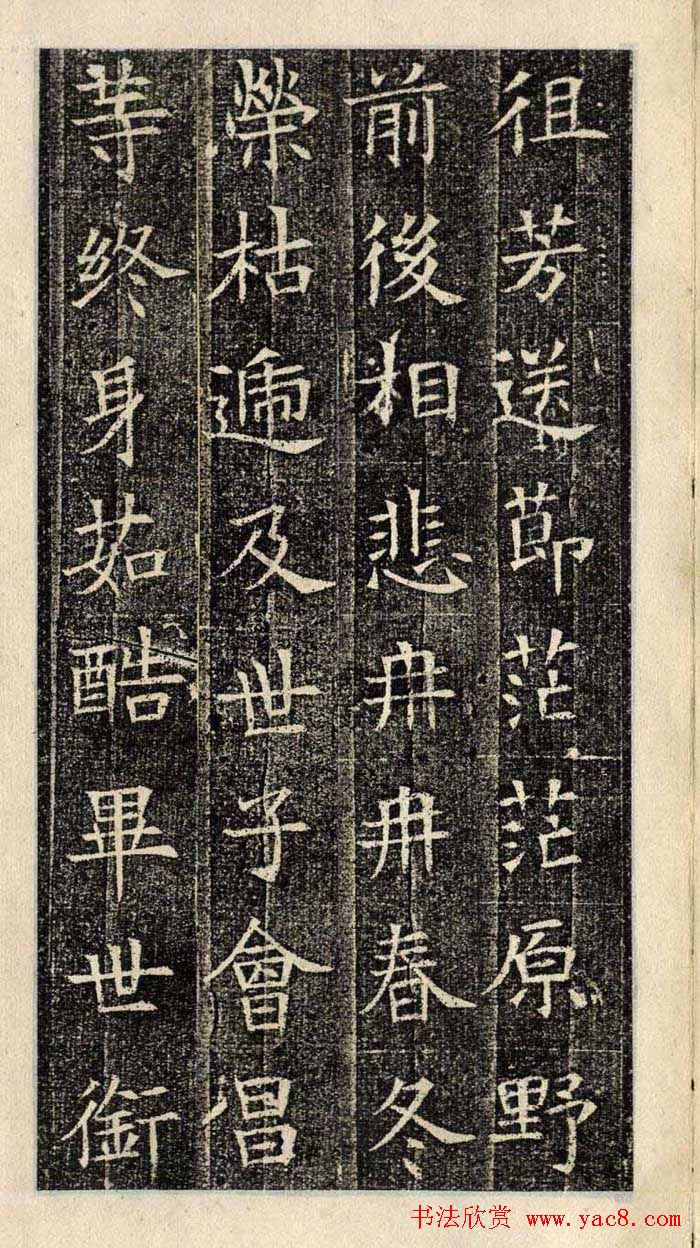 徂芳送莭茫茫原野
前後相悲冉冉春冬
榮枯遞及世子會倡
等終身茹酷畢世銜
书法欣赏 www.yac8.com